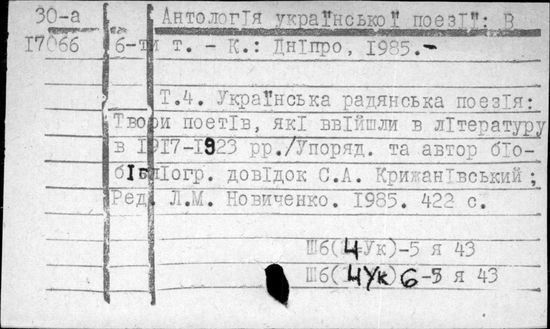 30-а Антологія української поезії: В
17066 6-ти т. - К.: Дніпро, 1985.-
Т.4. Українська радянська поезія:
Твори поетів, які ввійшли в літературу
в 1917-1923 рр./Упоряд. та автор біо-
бібліогр. довідок С.А. Крижанівський;
Ред. Л.М. Новиченко. 1985. 422 с.
Ш6(4Ук)-5 я 43
Ш6(4Ук)6-5 я 43